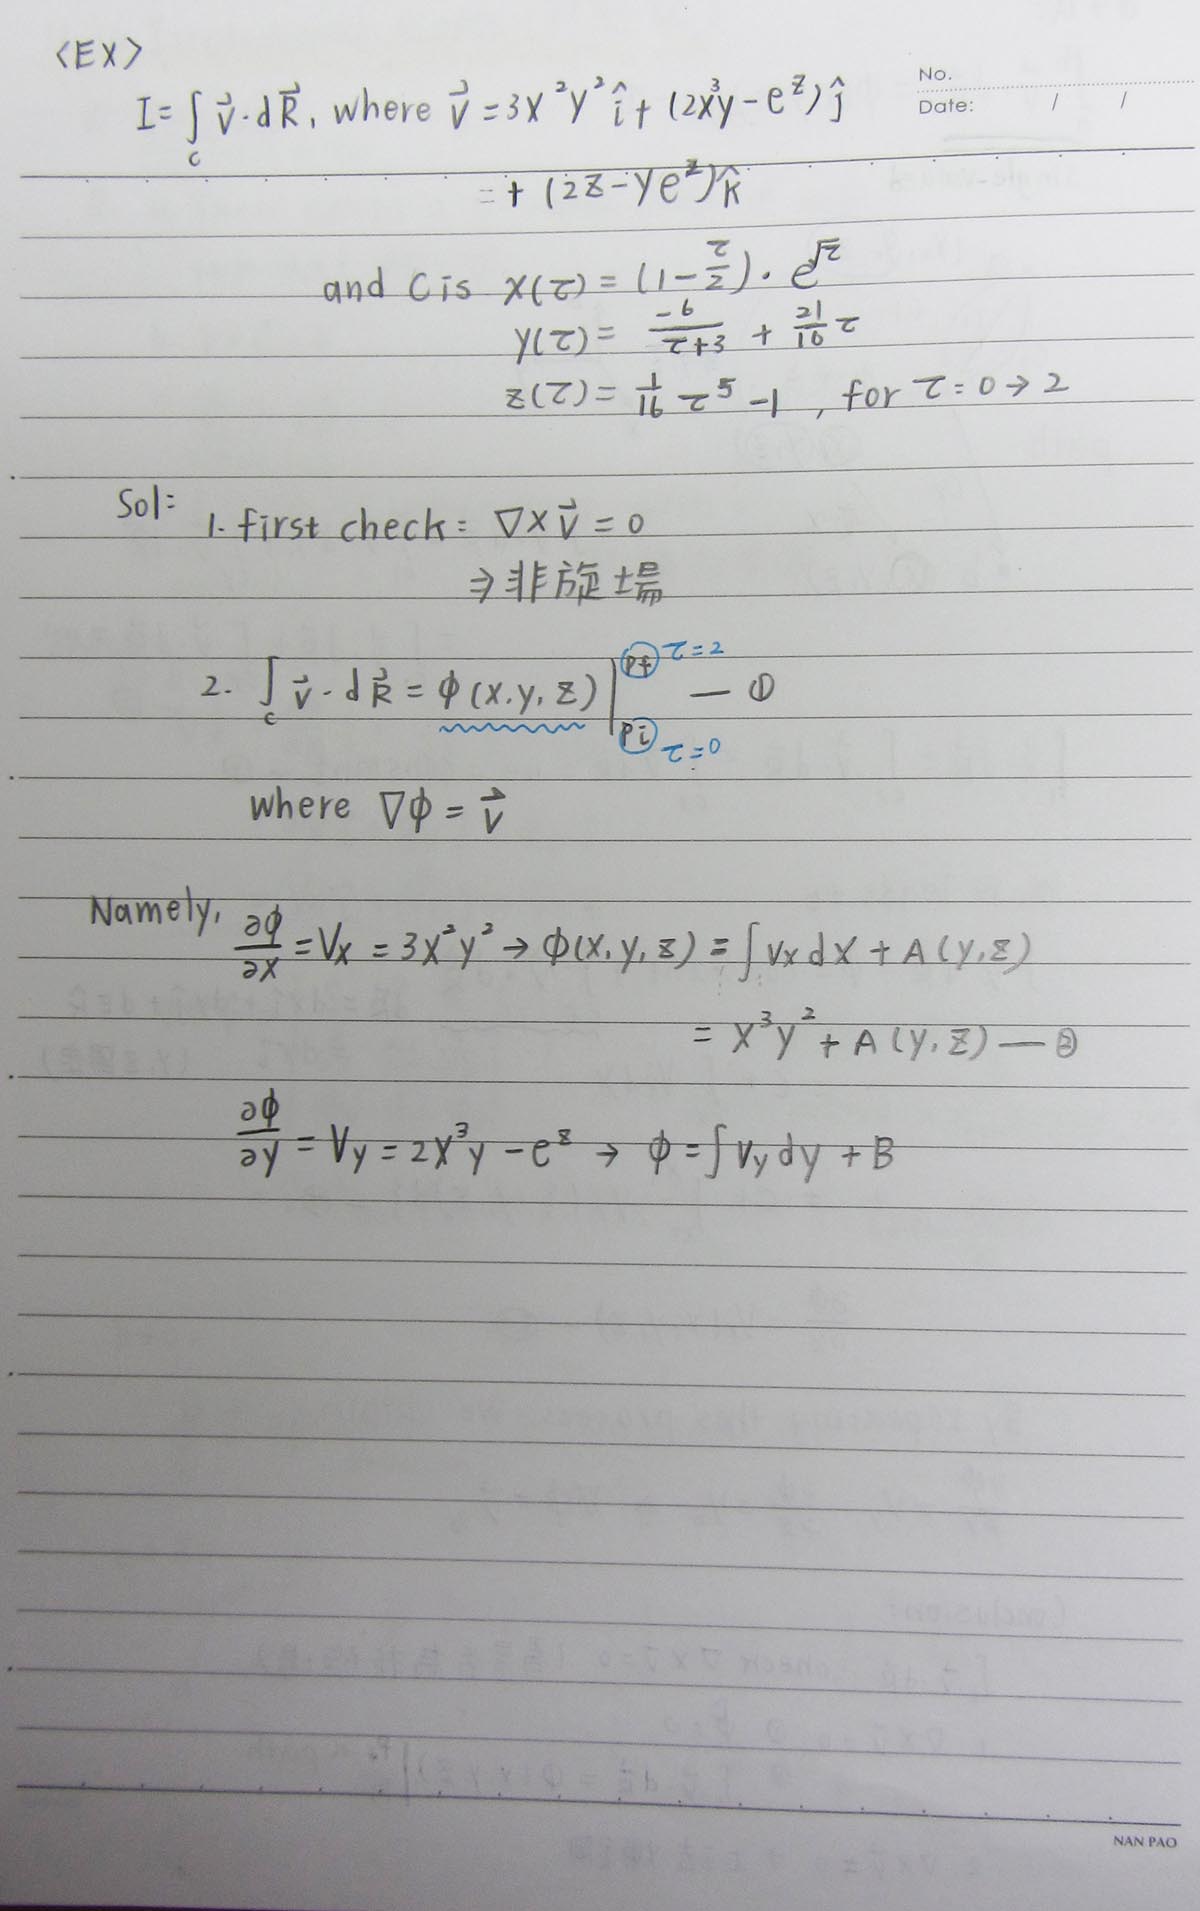 <EX>
No.
Date: / /
I = ∫_C v⃗ · dR⃗, where v⃗ = 3x²y² î + (2x³y - e^z) ĵ
= + (2z - ye^z) k̂
and C is x(τ) = (1 - τ/2) · e^√τ
y(τ) = -6/(τ+3) + 21/10 τ
z(τ) = 1/16 τ⁵ - 1, for τ = 0 → 2
Sol: 1. first check: ∇ × v⃗ = 0
⇒ 非旋場
2. ∫_c v⃗ · dR⃗ = φ(x.y,z) |_{Pi τ=0}^{Pf τ=2} — ①
where ∇φ = v⃗
Namely, ∂φ/∂x = Vx = 3x²y² → φ(x,y,z) = ∫ Vx dx + A(y,z)
= x³y² + A(y,z) — ②
∂φ/∂y = Vy = 2x³y - e^z → φ = ∫ Vy dy + B
NAN PAO